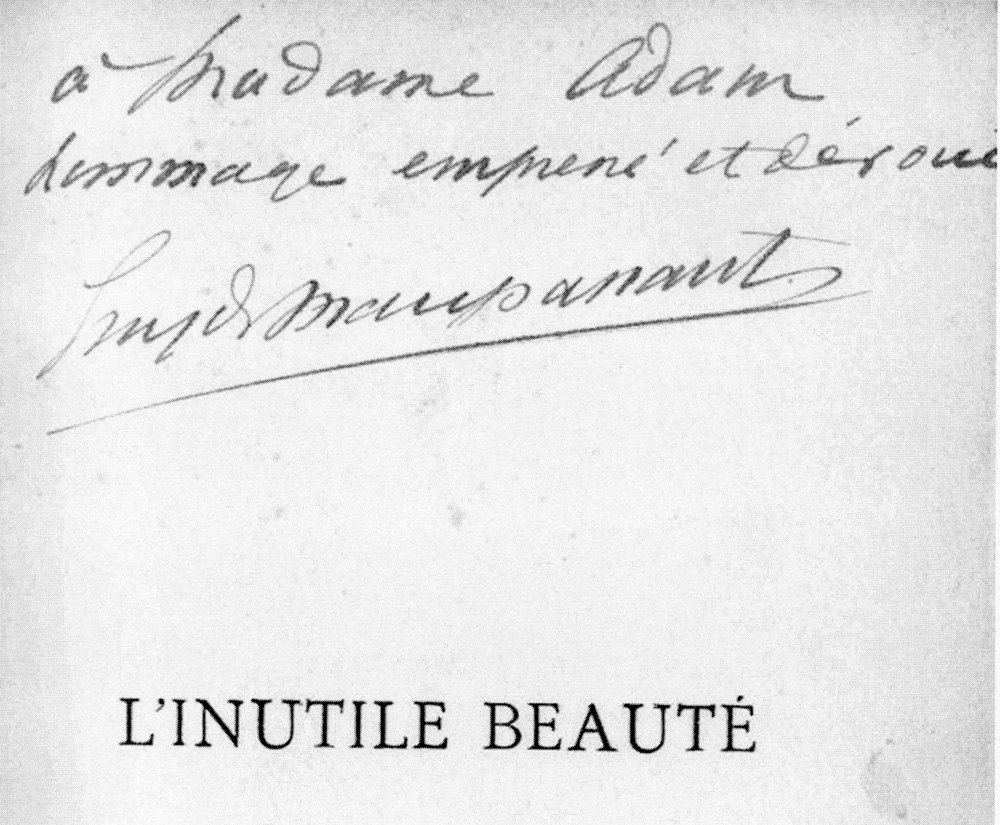 à Madame Adam
hommage empressé et dévoué
Guy de Maupassant
L'INUTILE BEAUTÉ